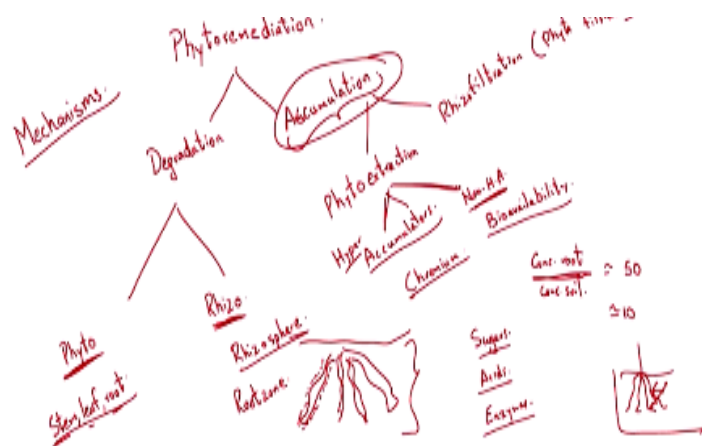 Phytoremediation.
Mechanisms.
Degradation
Accumulation
Rhizofiltration (Phyto
Phytoextraction
Hyper Accumulators.
Non-HA
Bioavailability.
Chromium.
Conc. root
Conc soil.
= 50
≃10
Phyto
Stem, leaf, root.
Rhizo
Rhizosphere.
Rootzone.
Sugars.
Acids.
Enzymes.